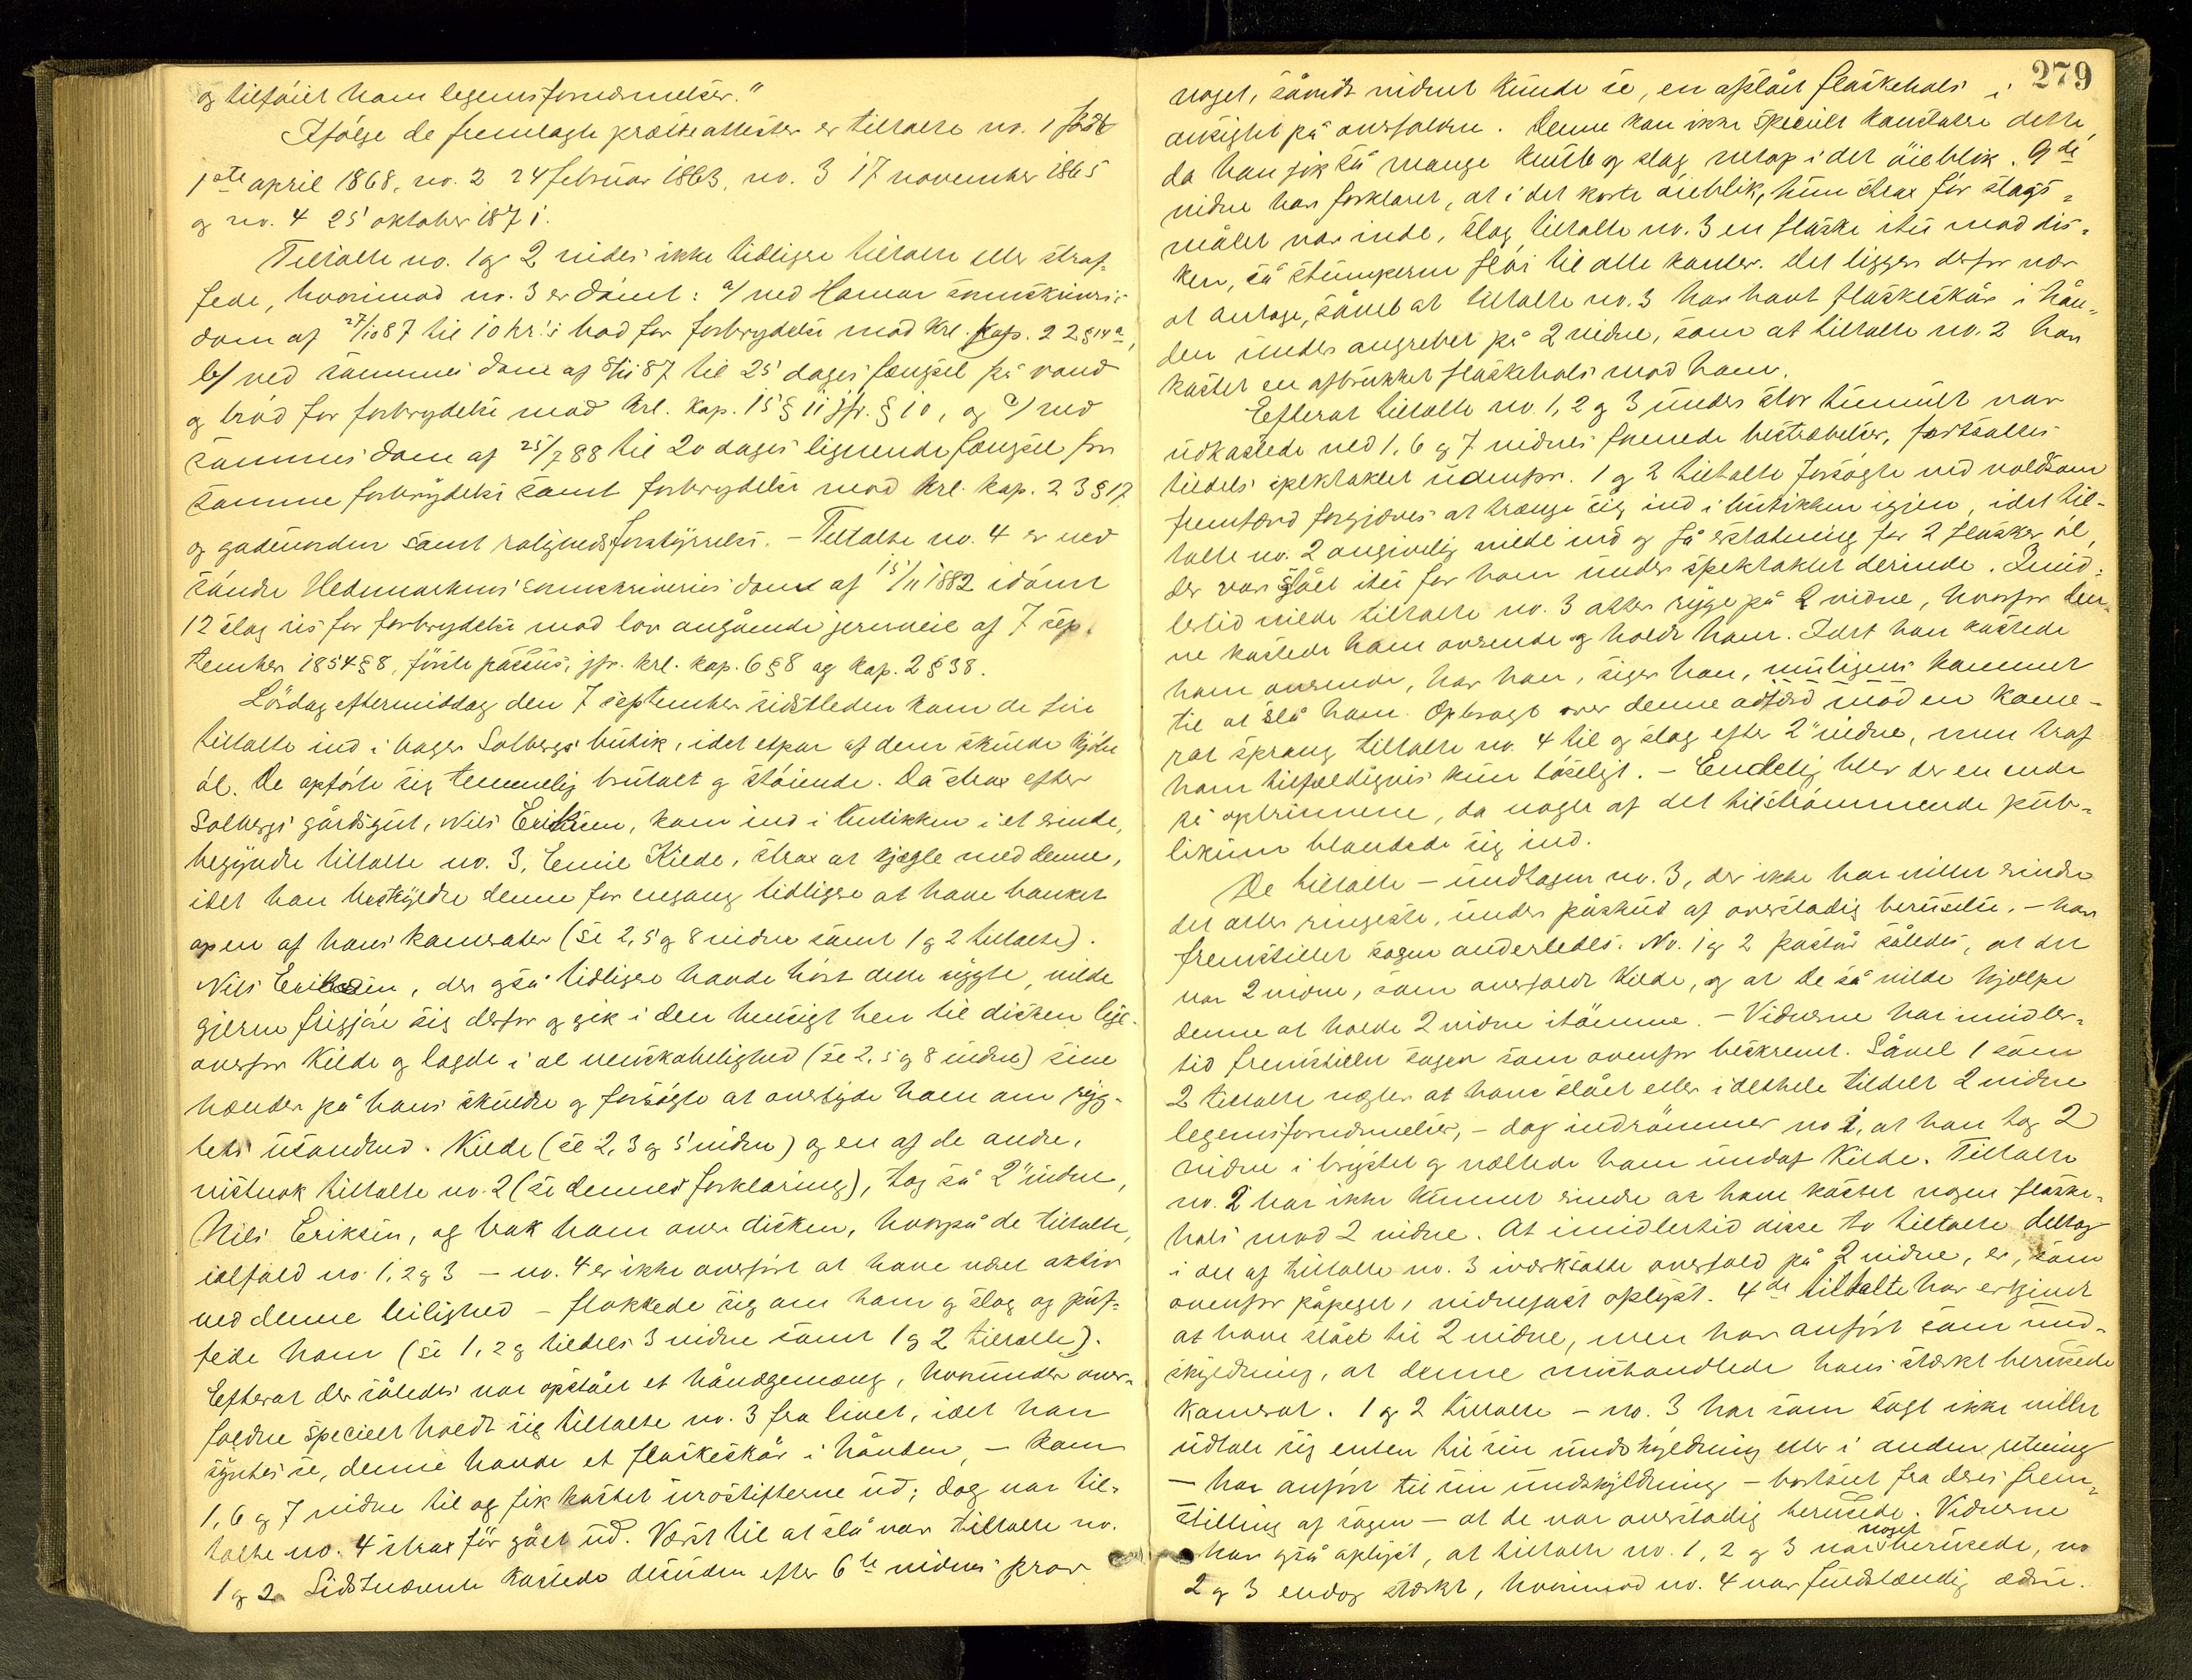 og tilføiet ham legemsfornærmelser."
Ifølge de fremlagte præsteattester er tiltalte no. 1 født
1ste april 1868, no. 2 24 februar 1863, no. 3 17 november 1865
og no. 4 25 oktober 1871.
Tiltalte no. 1 og 2 vides ikke tidligere tiltalte eller straf-
fede, hvorimod no. 3 er dømt: a/ ved Hamar sorenskriveris
dom af 27/10 87 til 10 kr.s bod for forbrydelse mod krl. kap. 22 § 14 a,
b/ ved sammes dom af 8/11 87 til 25 dages fængsel på vand
og brød for forbrydelse mod krl. kap. 15 § 11 jfr. § 10, og c/ ved
sammes dom af 25/7 88 til 20 dages lignende fængsel for
samme forbrydelse samt forbrydelse mod krl. kap. 23 § 17
og gadeuorden samt rolighedsforstyrrelse. – Tiltalte no. 4 er ved
søndre Hedemarkens sorenskriveries dom af 15/11 1882 idømt
12 slag ris for forbrydelse mod lov angående jernveie af 7 sep-
tember 1854 § 8, første passus, jfr. krl. kap. 6 § 8 og kap. 2 § 38.
Lørdag eftermiddag den 7 september sidstleden kom de fire
tiltalte ind i bager Solbergs butik, idet etpar af dem skulde kjøbe
øl. De opførte sig temmelig brutalt og støiende. Da strax efter
Solbergs gårdsgut, Nils Eriksen, kom ind i butikken i et ærinde,
begyndte tiltalte no. 3, Emil Kilde, strax at kjægle med denne,
idet han beskyldte denne for engang tidligere at have banket
op en af hans kamerater (se 2, 5 og 8 vidne samt 1 og 2 tiltalte).
Nils Eriksen, der også tidligere havde hørt dette rygte, vilde
gjerne frigjøre sig derfor og gik i den hensigt hen til disken lige-
overfor Kilde og lagde i al venskabelighed (se 2, 5 og 8 vidne) sine
hænder på hans skuldre og forsøgte at overtyde ham om ryg-
tets usandhed. Kilde (se 2, 3 og 5 vidne) og en af de andre,
vistnok tiltalte no. 2 (se dennes forklaring), tog så 2 vidne,
Nils Eriksen, og trak ham over disken, hvorpå de tiltalte,
ialfald no. 1, 2 og 3 – no. 4 er ikke overført at have været aktiv
ved denne leilighed – flokkede sig om ham og slog og puf-
fede ham (se 1, 2 og tildels 3 vidne samt 1 og 2 tiltalte).
Efterat der således var opstået et håndgemæng, hvorunder over-
faldne specielt holdt sig tiltalte no. 3 fra livet, idet han
syntes se, denne havde et flaskeskår i hånden, – kom
1, 6 og 7 vidne til og fik kastet urostifterne ud; dog var til-
talte no. 4 strax før gået ud. Værst til at slå var tiltalte no.
1 og 2. Sidstnævnte kastede desuden efter 6te vidnes prov
279
noget, såvidt vidnet kunde se, en afslået flaskehals i
ansigtet på overfaldne. Denne kan ikke specielt konstatere dette,
da han fik så mange knuf og slag netop i det øieblik. 9de
vidne har forklaret, at i det korte øieblik, hun strax før slags-
målet var inde, slog tiltalte no. 3 en flaske itu mod dis-
ken, så stumperne fløi til alle kanter. Det ligger derfor nær
at antage, såvel at tiltalte no. 3 har havt flaskeskår i hån-
den under angrebet på 2 vidne, som at tiltalte no. 2 har
kastet en afbrukket flaskehals mod ham.
Efterat tiltalte no. 1, 2 og 3 under stor tummult var
udkastede ved 1, 6 og 7 vidnes forenede bestræbelser, fortsattes
tildels spektaklet udenfor. 1 og 2 tiltalte forsøgte ved voldsom
fremfærd forgjæves at trænge sig ind i butikken igjen, idet til-
talte no. 2 angivelig vilde ind og få erstatning for 2 flasker øl,
der var slået itu for ham under spektaklet derinde. Imid-
lertid vilde tiltalte no. 3 atter ryge på 2 vidne, hvorfor den-
ne kastede ham overende og holdt ham. Idet han kastede
ham overende, har han, siger han, muligens kommet
til at slå ham. Opbragt over denne adfærd mod en kame-
rat sprang tiltalte no. 4 til og slog efter 2 vidne, men traf
ham tilfældigvis kun løseligt. – Endelig blev der en ende
på optrinnene, da noget af det tilstrømmende pub-
likum blandede sig ind.
De tiltalte – undtagen no. 3, der ikke har villet erindre
det aller ringeste, under påskud af overstadig beruselse, – har
fremstillet sagen anderledes. No. 1 og 2 påstår således, at det
var 2 vidne, som overfaldt Kilde, og at de så vilde hjælpe
denne at holde 2 vidne itømme. – Vidnerne har imidler-
tid fremstillet sagen som ovenfor beskrevet. Såvel 1 som
2 tiltalte nægter at have slået eller i det hele tildelt 2 vidne
legemsfornærmelser, – dog indrømmer no 1, at han tog 2
vidne i brystet og væltede ham undaf Kilde. Tiltalte
no. 2 har ikke kunnet erindre at have kastet nogen flaske-
hals mod 2 vidne. At imidlertid disse to tiltalte deltog
i det af tiltalte no. 3 iværksatte overfald på 2 vidne, er, som
ovenfor påpeget, vidnefast oplyst. 4de tiltalte har erkjendt
at have slået til 2 vidne, men har anført som und-
skyldning, at denne mishandlede hans stærkt berusede
kamerat. 1 og 2 tiltalte – no. 3 har som sagt ikke villet
udtale sig enten til sin undskyldning eller i anden retning
– har anført til sin undskyldning – bortseet fra deres frem-
stilling af sagen – at de var overstadig berusede. Vidnerne
har også oplyst, at tiltalte no. 1, 2 og 3 var noget berusede, no
2 og 3 endog stærkt, hvorimod no. 4 var fuldstændig ædru.